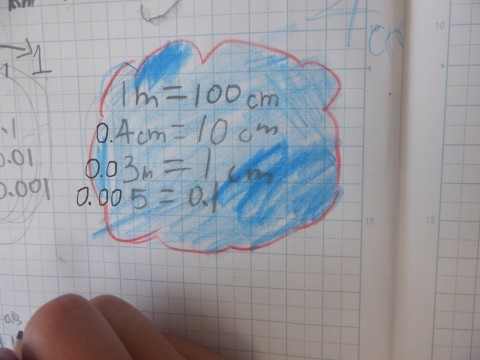 1
1m=100cm
0.4cm=10cm
0.03m=1cm
0.005=0.1
.1
0.01
0.001
4cm
10
15
15